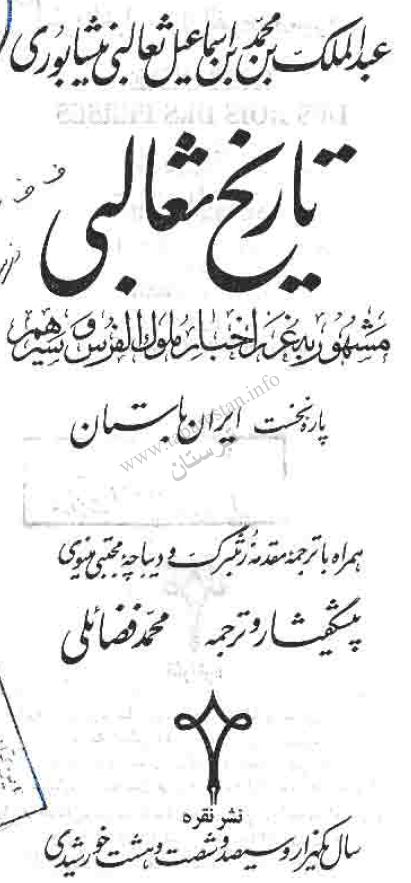 عبدالملک بن محمّد بن اسماعیل ثعالبی نیشابوری
تاریخ ثعالبی
مشهور به غرر اخبار ملوک الفرس و سیرهم
پارهٔ نخست ایران باستان
www.tabarestan.info
تبرستان
همراه با ترجمهٔ مقدمهٔ زتنبرگ و دیباچهٔ مجتبی مینوی
پیشگفتار و ترجمه محمّد فضائلی
نشر نقره
سال یکهزار و سیصد و شصت و هشت خورشیدی